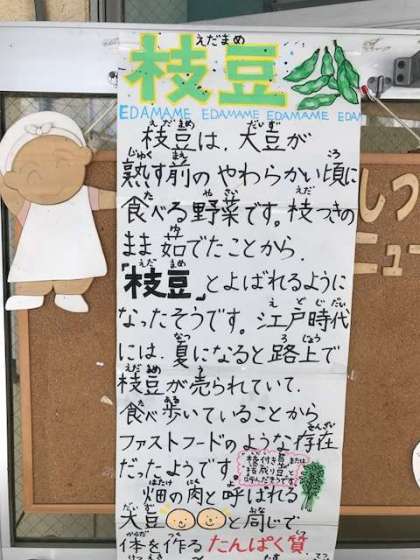 えだまめ
枝豆
EDAMAME EDAMAME EDAMAME EDAMAM
枝豆は、大豆が
熟す前のやわらかい頃に
食べる野菜です。枝つきの
まま茹でたことから、
「枝豆」とよばれるように
なったそうです。江戸時代
には、夏になると路上で
枝豆が売られていて、
食べ歩いていることから
ファストフードのような存在
だったようです。
畑の肉と呼ばれる
大豆と同じで、
体を作るたんぱく質
しっ
ニュー